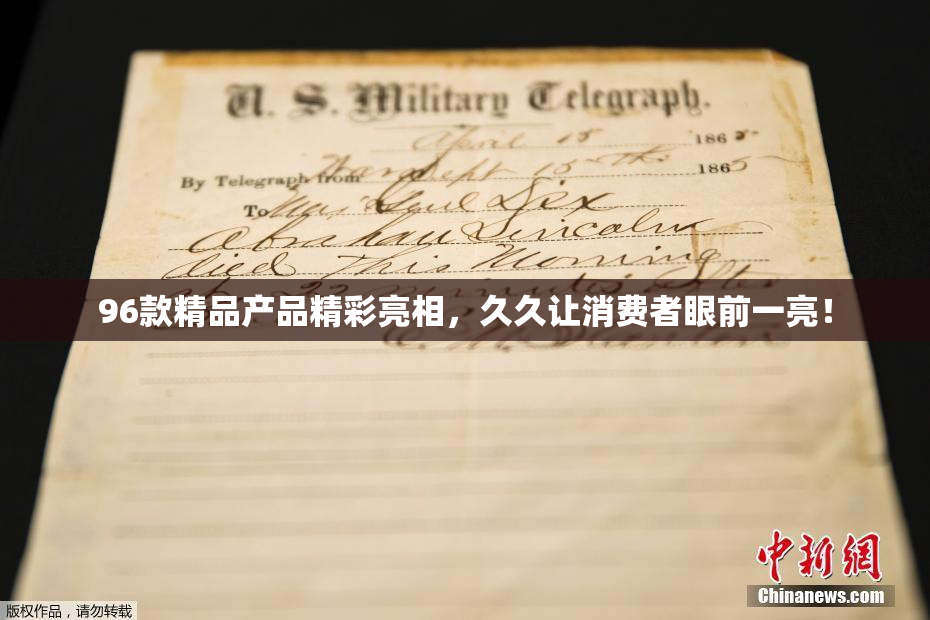 U. S. Military Telegraph.
April 15 1865
By Telegraph from War Dept 15th 1865
To Maj Genl Dix
Abraham Lincoln
died This Morning
at 22 minutes after
96款精品产品精彩亮相，久久让消费者眼前一亮！
E. M. Stanton
中新網
Chinanews.com
版权作品，请勿转载